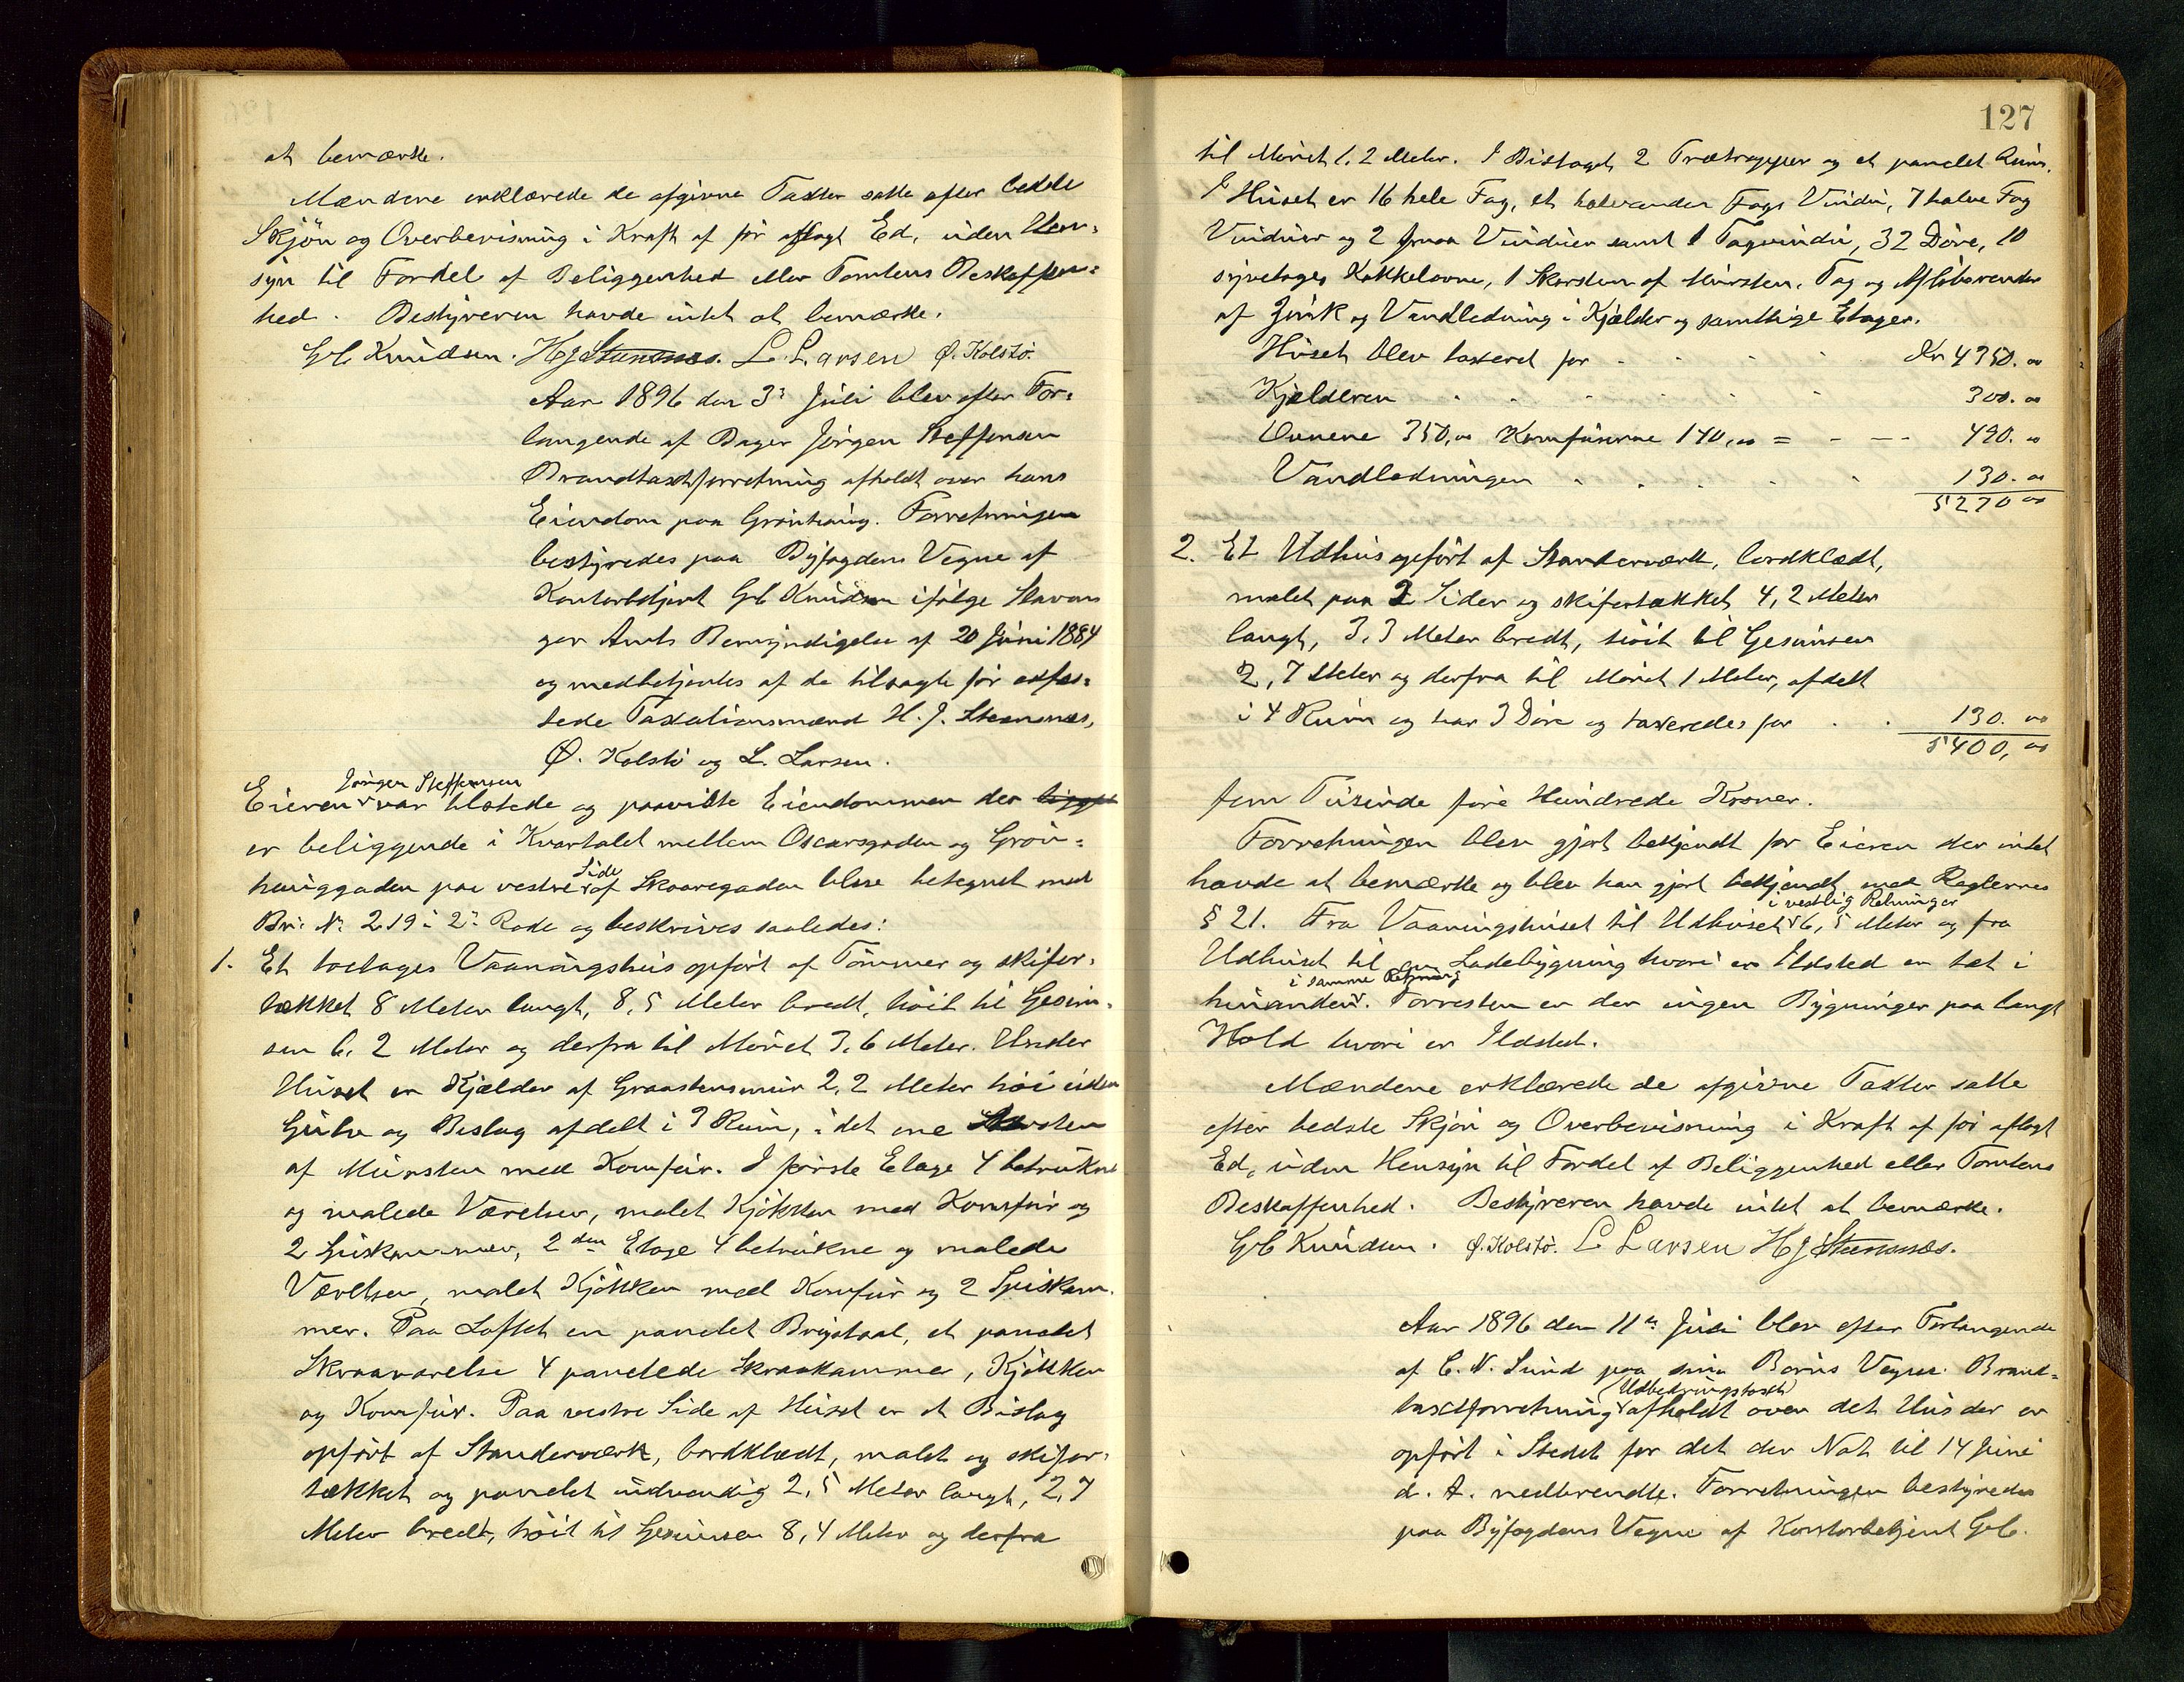 at bemærke.
Mændene erklærede de afgivne Taxter satte efter bedste
Skjön og Overbevisning i Kraft af för aflagt Ed, uden Hen-
syn til Fordel af Beliggenhed eller Tomtens Beskaffen-
hed. Bestyreren havde intet at bemærke.
Gb Knudsen. HJStensnæs. L. Larsen Ø. Kolstø.
Aar 1896 den 3. Juli blev efter For-
langende af Bager Jörgen Steffensen
Brandtaxtforretning afholdt over hans
Eiendom paa Grönhaug. Forretningen
bestyredes paa Byfogdens Vegne af
Kontorbetjent Gb Knudsen ifölge Stavan
ger Amts Bemyndigelse af 20 Juni 1884
og medbetjentes af de tilsagte för edfæs-
tede Taxationsmænd H. J. Stensnæs,
Ø. Kolstö og L. Larsen.
Jörgen Steffensen
Eieren var tilstede og paaviste Eiendommen der
er beliggende i Kvartalet mellem Oscarsgaden og Grön-
Side
hauggaden paa vestre af Skaaregaden blev betegnet med
Br. No 219 i 2. Rode og beskrives saaledes:
1. Et toetages Vaaningshus opfört af Tömmer og skifer-
tækket 8 Meter langt, 8,5 Meter bredt, höit til Gesim-
sen 6,2 Meter og derfra til Mönet 3,6 Meter. Under
Huset er Kjælder af Graastensmur 2,2 Meter höi uden
Gulv og Beslag afdelt i 3 Rum, i det ene Skorsten
af Mursten med Komfur. I förste Etage 4 betrukne
og malede Værelser, malet Kjökken med Komfur og
2 Spiskammer, 2den Etage 4 betrukne og malede
Værelser, malet Kjökken med Komfur og 2 Spiskam-
mer. Paa Loftet en panelet Brystaal, et panelet
Skraaværelse 4 panelede Skraakammer, Kjökken
og Komfur. Paa vestre Side af Huset er et Bislag
opfört af Standerværk, bordklædt, malet og skifer-
tækket og panelet indvendig 2,5 Meter langt, 2,7
Meter bredt, höit til Gesimsen 8,4 Meter og derfra
127
til Mönet 1,2 Meter. I Bislaget 2 Trætrapper og et panelet Rum.
I Huset er 16 hele Fag, et halvanden Fags Vindu, 7 halve Fag
Vinduer og 2 smaa Vinduer samt 1 Tagvindu, 32 Döre, 10
Kakkelovne, 1 Skorsten af Mursten. Tag og Aflöbsrender
af Zink og Vandledning i Kjælder og samtlige Etager.
Huset blev taxeret for . . . . Kr 4350. oo
Kjælderen . . . . . . 300. oo
Ovnene 350,oo Komfurerne 140,oo = - - - 490. oo
Vandledningen . . . . . 130. oo
5270 oo
2. Et Udhus opfört af Standerværk, bordklædt,
malet paa 2 Sider og skifertækket, 4,2 Meter
langt, 3,3 Meter bredt, höit til Gesimsen
2,7 Meter og derfra til Mönet 1 Meter, afdelt
i 4 Rum og har 3 Döre og taxeredes for . . 130. oo
5400, oo
fem Tusinde fire Hundrede Kroner.
Forretningen blev gjort bekjendt for Eieren der intet
havde at bemærke og blev han gjort bekjendt med Reglernes
i vestlig Retninger
§ 21. Fra Vaaningshuset til Udhuset 6,5 Meter og fra
Udhuset til en Ladebygning hvori er Ildsted er tæt i
i samme Retning
hinanden. Forresten er der ingen Bygninger paa langt
Hold hvori er Ildsted.
Mændene erklærede de afgivne Taxter satte
efter bedste Skjön og Overbevisning i Kraft af för aflagt
Ed, uden Hensyn til Fordel af Beliggenhed eller Tomtens
Beskaffenhed. Bestyreren havde intet at bemærke.
Gb Knudsen. Ø. Kolstø. L Larsen HJStensnæs.
Aar 1896 den 11te Juli blev efter Forlangende
af C. N. Sund paa sine Börns Vegne Brand-
(Udbedringstaxt)
taxtforretning afholdt over det Hus der er
opfört i Stedet for det der Nat til 14 Juni
d. A. nedbrendte. Forretningen bestyredes
paa Byfogdens Vegne af Kontorbetjent Gb.